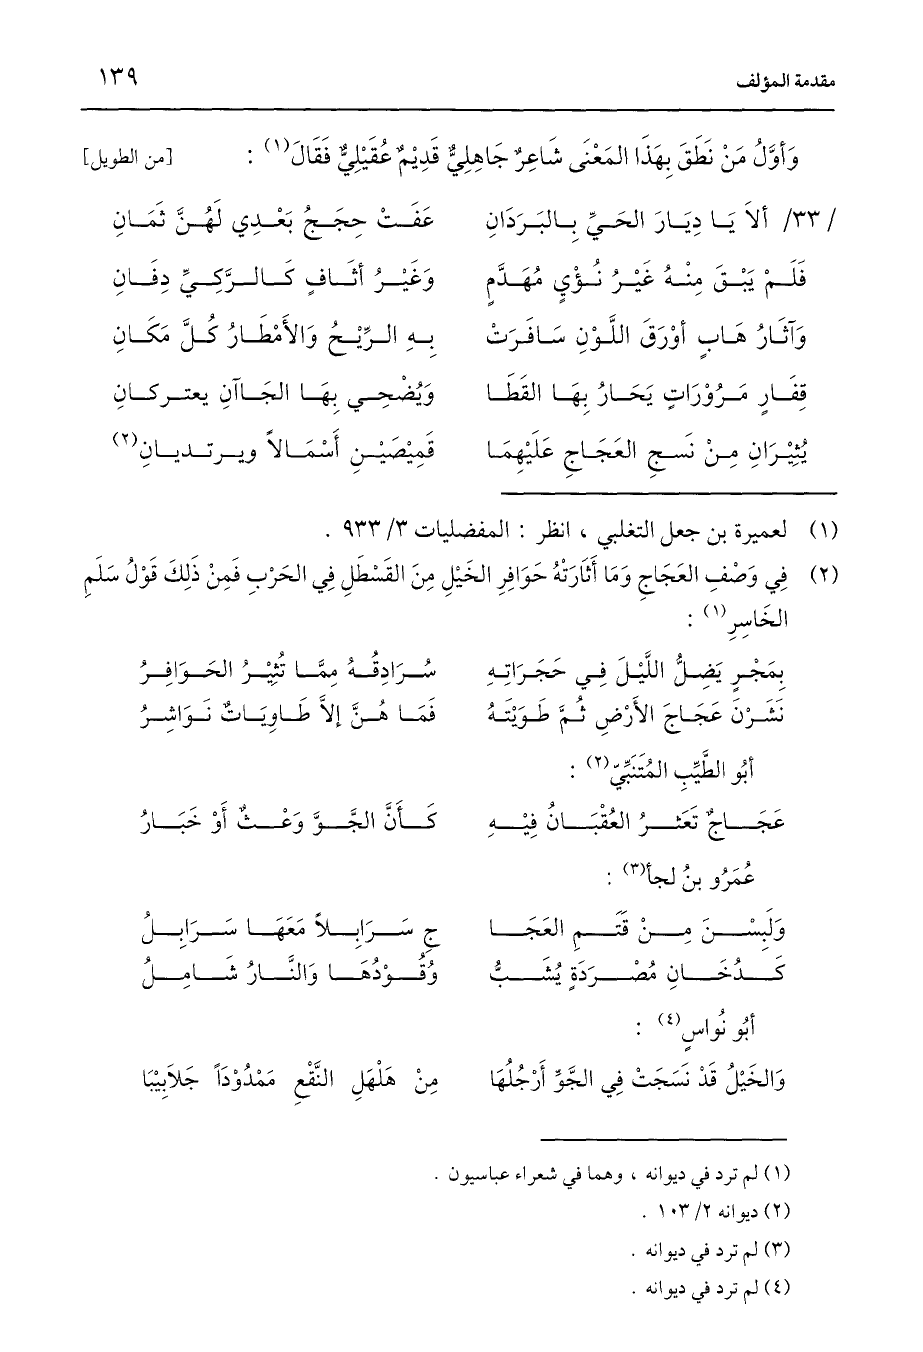 مقدمة المؤلف ١٣٩
وَأَوَّلُ مَنْ نَطَقَ بِهَذَا المَعْنَى شَاعِرٌ جَاهِلِيٌّ قَدِيْمٌ عُقَيْلِيٌّ فَقَالَ(١) : [من الطويل]
/ ٣٣/ ألاَ يَا دِيَارَ الحَيِّ بِالبَرَدَانِ عَفَتْ حِجَجٌ بَعْدِي لَهُنَّ ثَمَانِ
فَلَمْ يَبْقَ مِنْهُ غَيْرُ نُؤْيٍ مُهَدَّمٍ وَغَيْرُ أثَافٍ كَالرَّكِيِّ دِفَانِ
وَآثَارُ هَابٍ أوْرَقَ اللَّوْنِ سَافَرَتْ بِهِ الرِّيْحُ وَالأمْطَارُ كُلَّ مَكَانِ
قِفَارٍ مَرُوْرَاتٍ يَحَارُ بِهَا القَطَا وَيُضْحِي بِهَا الجَاآنِ يعتركانِ
يُثِيْرَانِ مِنْ نَسجِ العَجَاجِ عَلَيْهِمَا قَمِيْصَيْنِ أَسْمَالاً ويرتديانِ(٢)
(١) لعميرة بن جعل التغلبي ، انظر : المفضليات ٣/ ٩٣٣ .
(٢) فِي وَصْفِ العَجَاجِ وَمَا أَثَارَتْهُ حَوَافِرِ الخَيْلِ مِنَ القَسْطَلِ فِي الحَرْبِ فَمِنْ ذَلِكَ قَوْلُ سَلْمٍ
الخَاسِرِ(١) :
بِمَجْرٍ يَضِلُّ اللَّيْلَ فِي حَجَرَاتِهِ سُرَادِقُهُ مِمَّا تُثِيْرُ الحَوَافِرُ
نَشَرْنَ عَجَاجَ الأرْضِ ثُمَّ طَوَيْنَهُ فَمَا هُنَّ إلاَّ طَاوِيَاتٌ نَوَاشِرُ
أبُو الطَّيِّبِ المُتَنَبِّيّ(٢) :
عَجَاجٌ تَعْثرُ العُقْبَانُ فِيْهِ كَأَنَّ الجَوَّ وَعْثٌ أوْ خَبَارُ
عُمَرُو بنُ لجأ(٣) :
وَلَبِسْنَ مِنْ قَتَمِ العَجَا جِ سَرَابِلاً مَعَهَا سَرَابِلُ
كَدُخَانِ مُصْرَدَةٍ يُشَبُّ وُقُوْدُهَا وَالنَّارُ شَامِلُ
أبُو نُواسٍ(٤) :
وَالخَيْلُ قَدْ نَسَجَتْ فِي الجَوِّ أَرْجُلُهَا مِنْ هَلْهَلِ النَّقْعِ مَمْدُوْدَاً جَلاَبِيْبَا
(١) لم ترد في ديوانه ، وهما في شعراء عباسيون .
(٢) ديوانه ٢/ ١٠٣ .
(٣) لم ترد في ديوانه .
(٤) لم ترد في ديوانه .